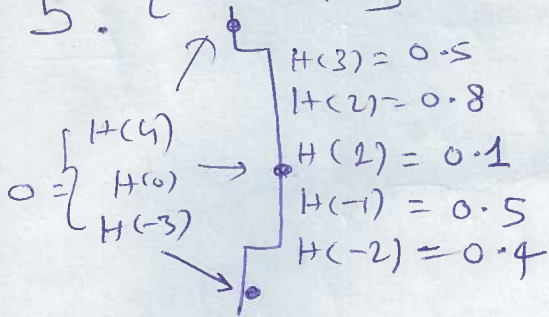 5.
H(3) = 0.5
H(2) = 0.8
H(2) = 0.1
H(-1) = 0.5
H(-2) = 0.4
0 = { H(4)
H(0)
H(-3)